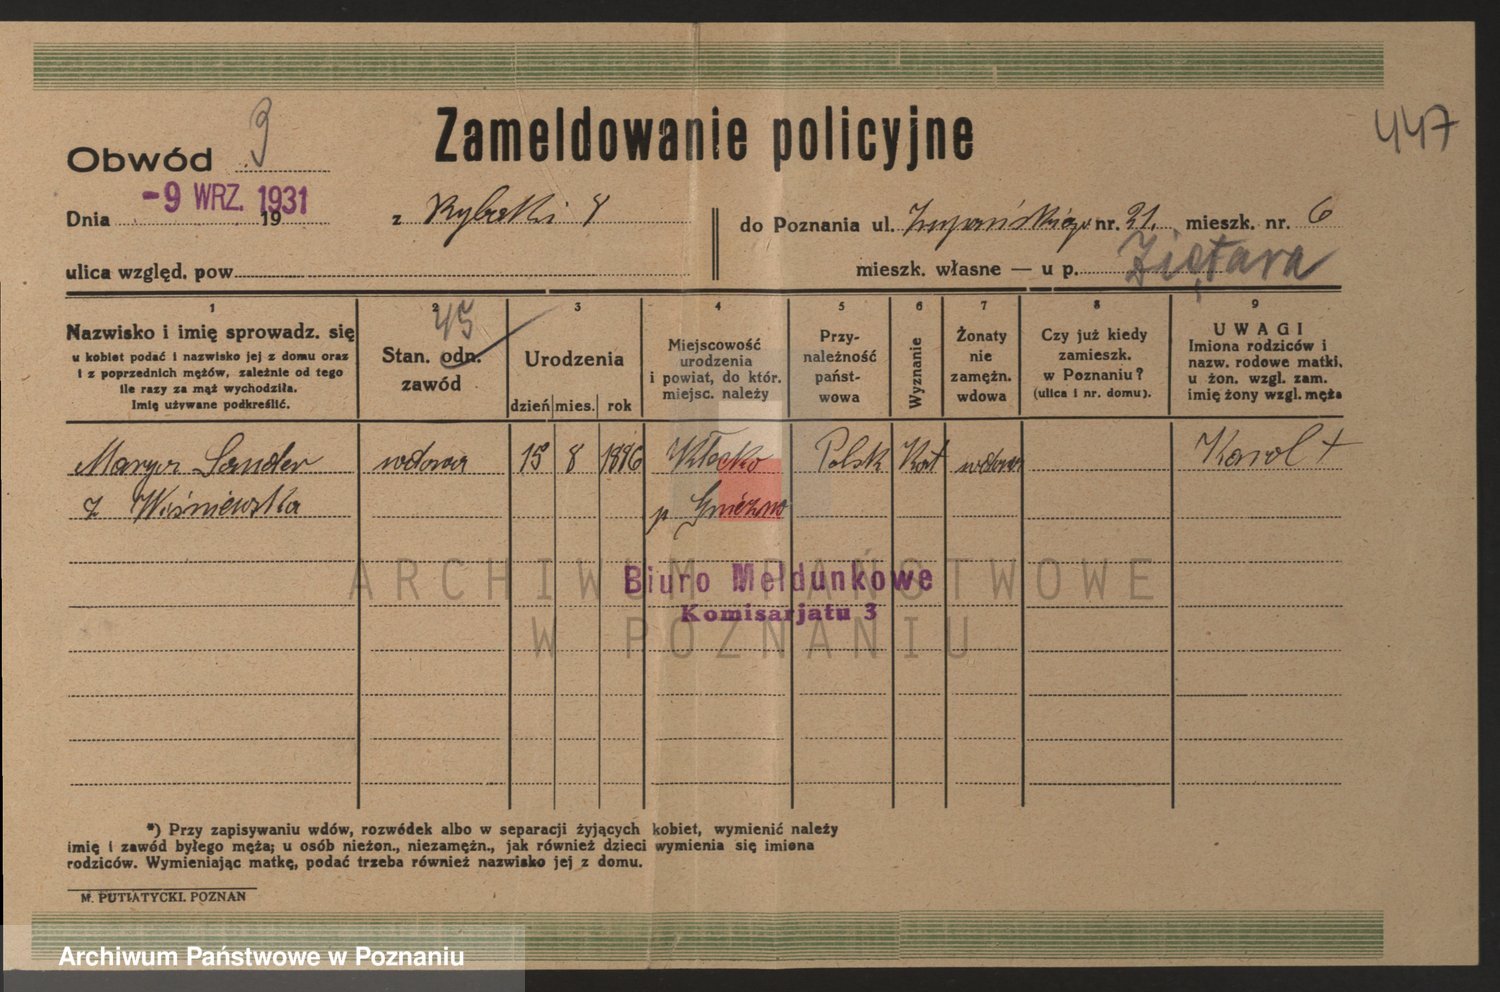 447
Zameldowanie policyjne
Obwód 3
Dnia -9 WRZ. 1931 19 z Rybaki 8 do Poznania ul. Żupańskiego nr. 21. mieszk. nr. 6
ulica względ. pow. mieszk. własne — u p. Ziętara
1 2 3 4 5 6 7 8 9
Nazwisko i imię sprowadz. się
u kobiet podać i nazwisko jej z domu oraz
i z poprzednich mężów, zależnie od tego
ile razy za mąż wychodziła.
Imię używane podkreślić.
45
Stan. odn.
zawód
Urodzenia
dzień mies. rok
Miejscowość
urodzenia
i powiat, do któr.
miejsc. należy
Przy-
należność
państ-
wowa
Wyznanie
Żonaty
nie
zamężn.
wdowa
Czy już kiedy
zamieszk.
w Poznaniu?
(ulica i nr. domu).
UWAGI
Imiona rodziców i
nazw. rodowe matki,
u żon. wzgl. zam.
imię żony wzgl. męża
Marya Sander wdowa 15 8 1886 Kłecko Polsk Kat wdowa Karol +
z Wiśniewska p Gniezno
ARCHIWUM PAŃSTWOWE
W POZNANIU
Biuro Meldunkowe
Komisarjatu 3
*) Przy zapisywaniu wdów, rozwódek albo w separacji żyjących kobiet, wymienić należy
imię i zawód byłego męża; u osób nieżon., niezamężn., jak również dzieci wymienia się imiona
rodziców. Wymieniając matkę, podać trzeba również nazwisko jej z domu.
M. PUTIATYCKI. POZNAN
Archiwum Państwowe w Poznaniu